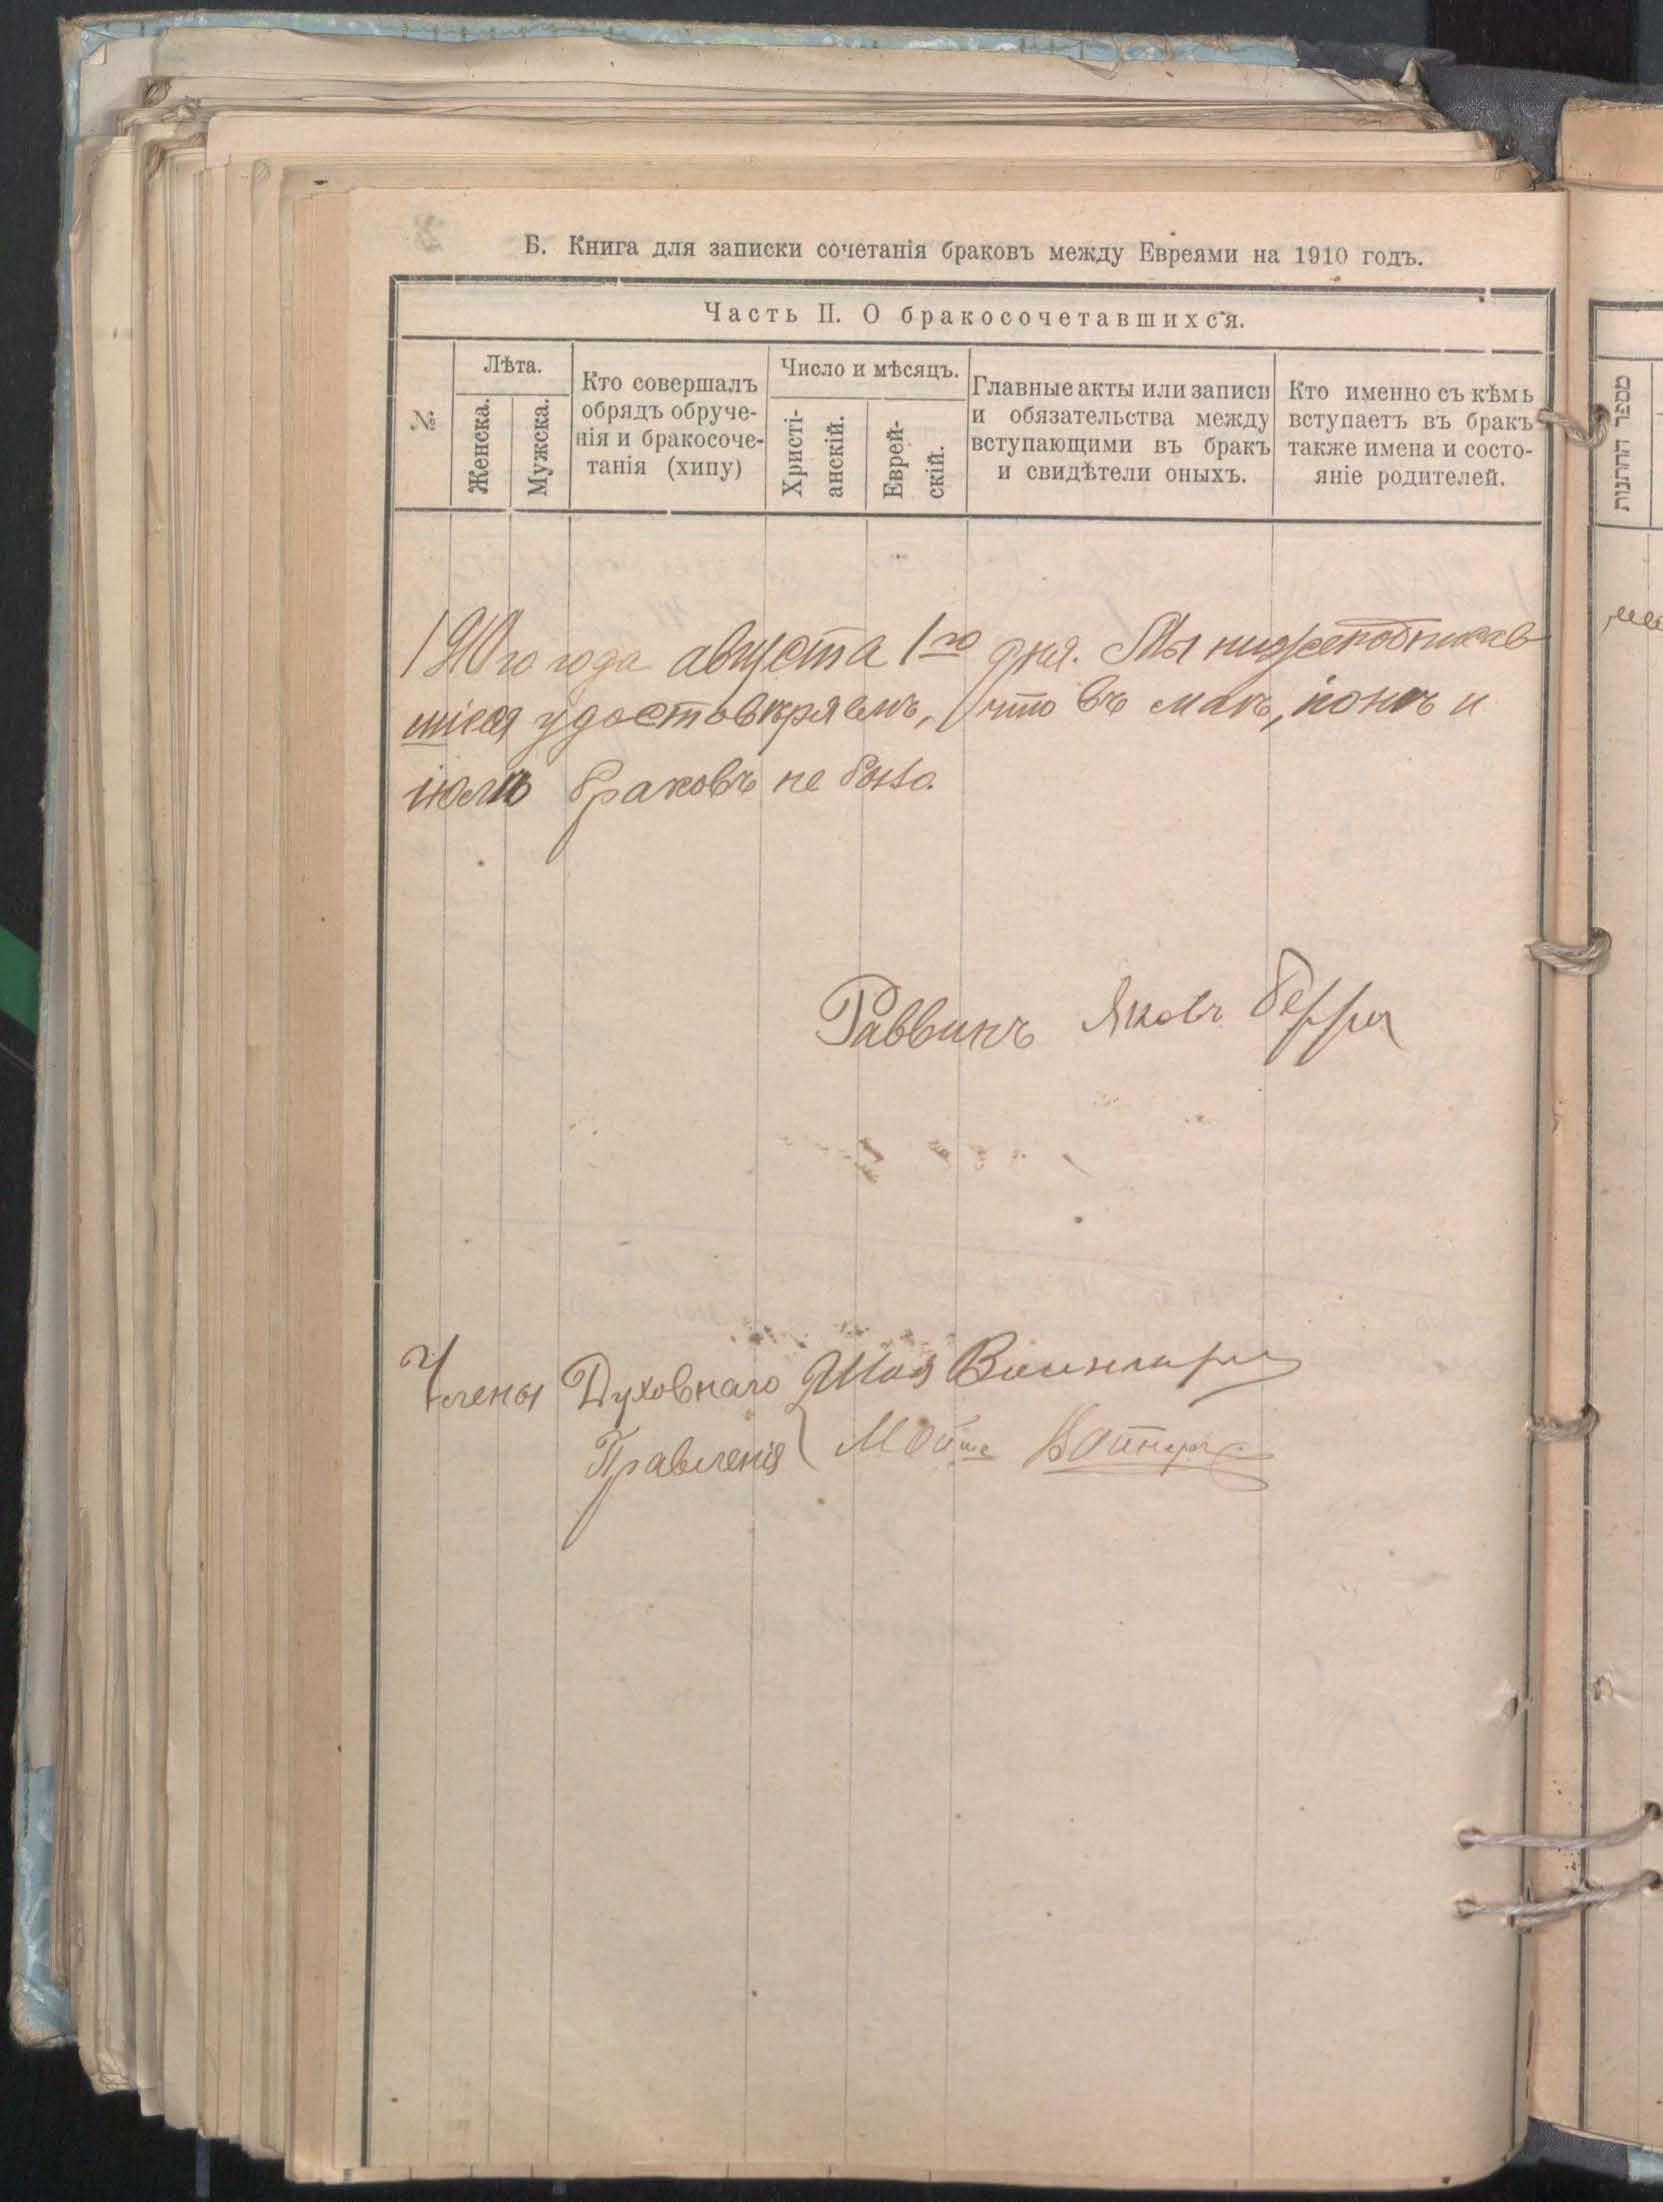 Б. Книга для записки сочетанія браковъ между Евреями на 1910 годъ.
Часть II. О бракосочетавшихся.
№
Лѣта.
Женска.
Мужска.
Кто совершалъ
обрядъ обруче-
нія и бракосоче-
танія (хипу)
Число и мѣсяцъ.
Христі-
анскій.
Еврей-
скій.
Главные акты или записи
и обязательства между
вступающими въ бракъ
и свидѣтели оныхъ.
Кто именно съ кѣмъ
вступаетъ въ бракъ
также имена и состо-
яніе родителей.
מספר החתנות
1910 го года августа 1го дня. Мы нижеподписав
шіеся удостовѣряемъ, что въ маѣ, іюнѣ и
іюлѣ браковъ не было.
Раввинъ Яковъ
Члены Духовнаго Шая
Правленія Мойше